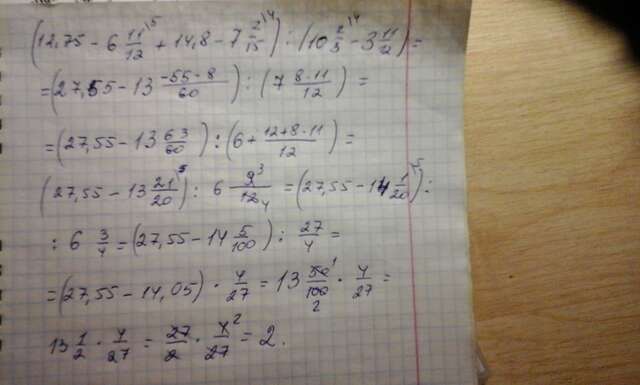 (12,75 - 6 11/12 ⁵ + 14,8 - 7 2/15 ⁴) : (10 2/3 ⁴ - 3 11/12) =
= (27,55 - 13 -55-8/60) : (7 8-11/12) =
= (27,55 - 13 63/60) : (6 + 12+8-11/12) =
(27,55 - 13 21/20 ⁵) : 6 9³/12₄ = (27,55 - 14 1/20 ⁵) :
: 6 3/4 = (27,55 - 14 5/100) : 27/4 =
= (27,55 - 14,05) · 4/27 = 13 50¹/100₂ · 4/27 =
13 1/2 · 4/27 = 27/2 · 4²/27 = 2.